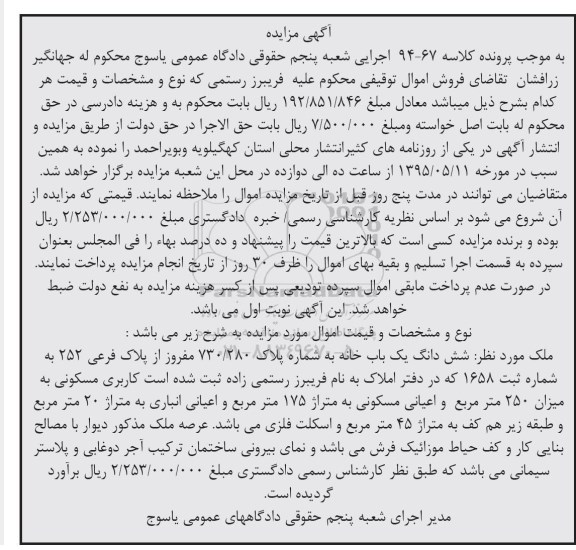 آگهی مزایده
به موجب پرونده کلاسه ۶۷-۹۴ اجرایی شعبه پنجم حقوقی دادگاه عمومی یاسوج محکوم له جهانگیر
زرافشان تقاضای فروش اموال توقیفی محکوم علیه فریبرز رستمی که نوع و مشخصات و قیمت هر
کدام بشرح ذیل میباشد معادل مبلغ ۱۹۲/۸۵۱/۸۴۶ ریال بابت محکوم به و هزینه دادرسی در حق
محکوم له بابت اصل خواسته ومبلغ ۷/۵۰۰/۰۰۰ ریال بابت حق الاجرا در حق دولت از طریق مزایده و
انتشار آگهی در یکی از روزنامه های کثیرانتشار محلی استان کهگیلویه وبویراحمد را نموده به همین
سبب در مورخه ۱۳۹۵/۰۵/۱۱ از ساعت ده الی دوازده در محل این شعبه مزایده برگزار خواهد شد.
متقاضیان می توانند در مدت پنج روز قبل از تاریخ مزایده اموال را ملاحظه نمایند. قیمتی که مزایده از
آن شروع می شود بر اساس نظریه کارشناسی رسمی/ خبره دادگستری مبلغ ۲/۲۵۳/۰۰۰/۰۰۰ ریال
بوده و برنده مزایده کسی است که بالاترین قیمت را پیشنهاد و ده درصد بهاء را فی المجلس بعنوان
سپرده به قسمت اجرا تسلیم و بقیه بهای اموال را ظرف ۳۰ روز از تاریخ انجام مزایده پرداخت نمایند.
در صورت عدم پرداخت مابقی اموال سپرده تودیعی پس از کسر هزینه مزایده به نفع دولت ضبط
خواهد شد. این آگهی نوبت اول می باشد.
نوع و مشخصات و قیمت اموال مورد مزایده به شرح زیر می باشد :
ملک مورد نظر: شش دانگ یک باب خانه به شماره پلاک ۷۳۰/۲۸۰ مفروز از پلاک فرعی ۲۵۲ به
شماره ثبت ۱۶۵۸ که در دفتر املاک به نام فریبرز رستمی زاده ثبت شده است کاربری مسکونی به
میزان ۲۵۰ متر مربع و اعیانی مسکونی به متراژ ۱۷۵ متر مربع و اعیانی انباری به متراژ ۲۰ متر مربع
و طبقه زیر هم کف به متراژ ۴۵ متر مربع و اسکلت فلزی می باشد. عرصه ملک مذکور دیوار با مصالح
بنایی کار و کف حیاط موزائیک فرش می باشد و نمای بیرونی ساختمان ترکیب آجر دوغابی و پلاستر
سیمانی می باشد که طبق نظر کارشناس رسمی دادگستری مبلغ ۲/۲۵۳/۰۰۰/۰۰۰ ریال برآورد
گردیده است.
مدیر اجرای شعبه پنجم حقوقی دادگاههای عمومی یاسوج